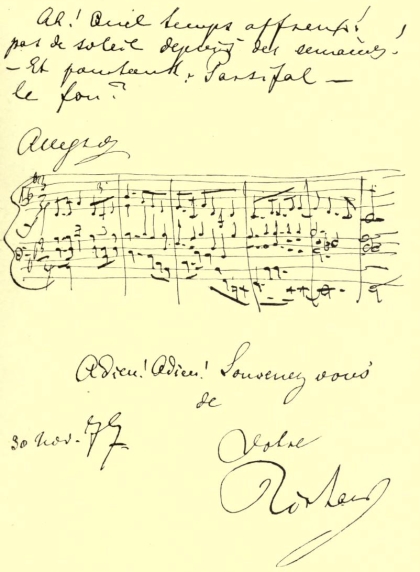 Ah! Quel temps affreux!
pas de soleil depuis des semaines!
– Et pourtant. Parsifal –
le fou?
Allegro
Adieu! Adieu! Souvenez vous
de
30 Nov. 77.
Votre